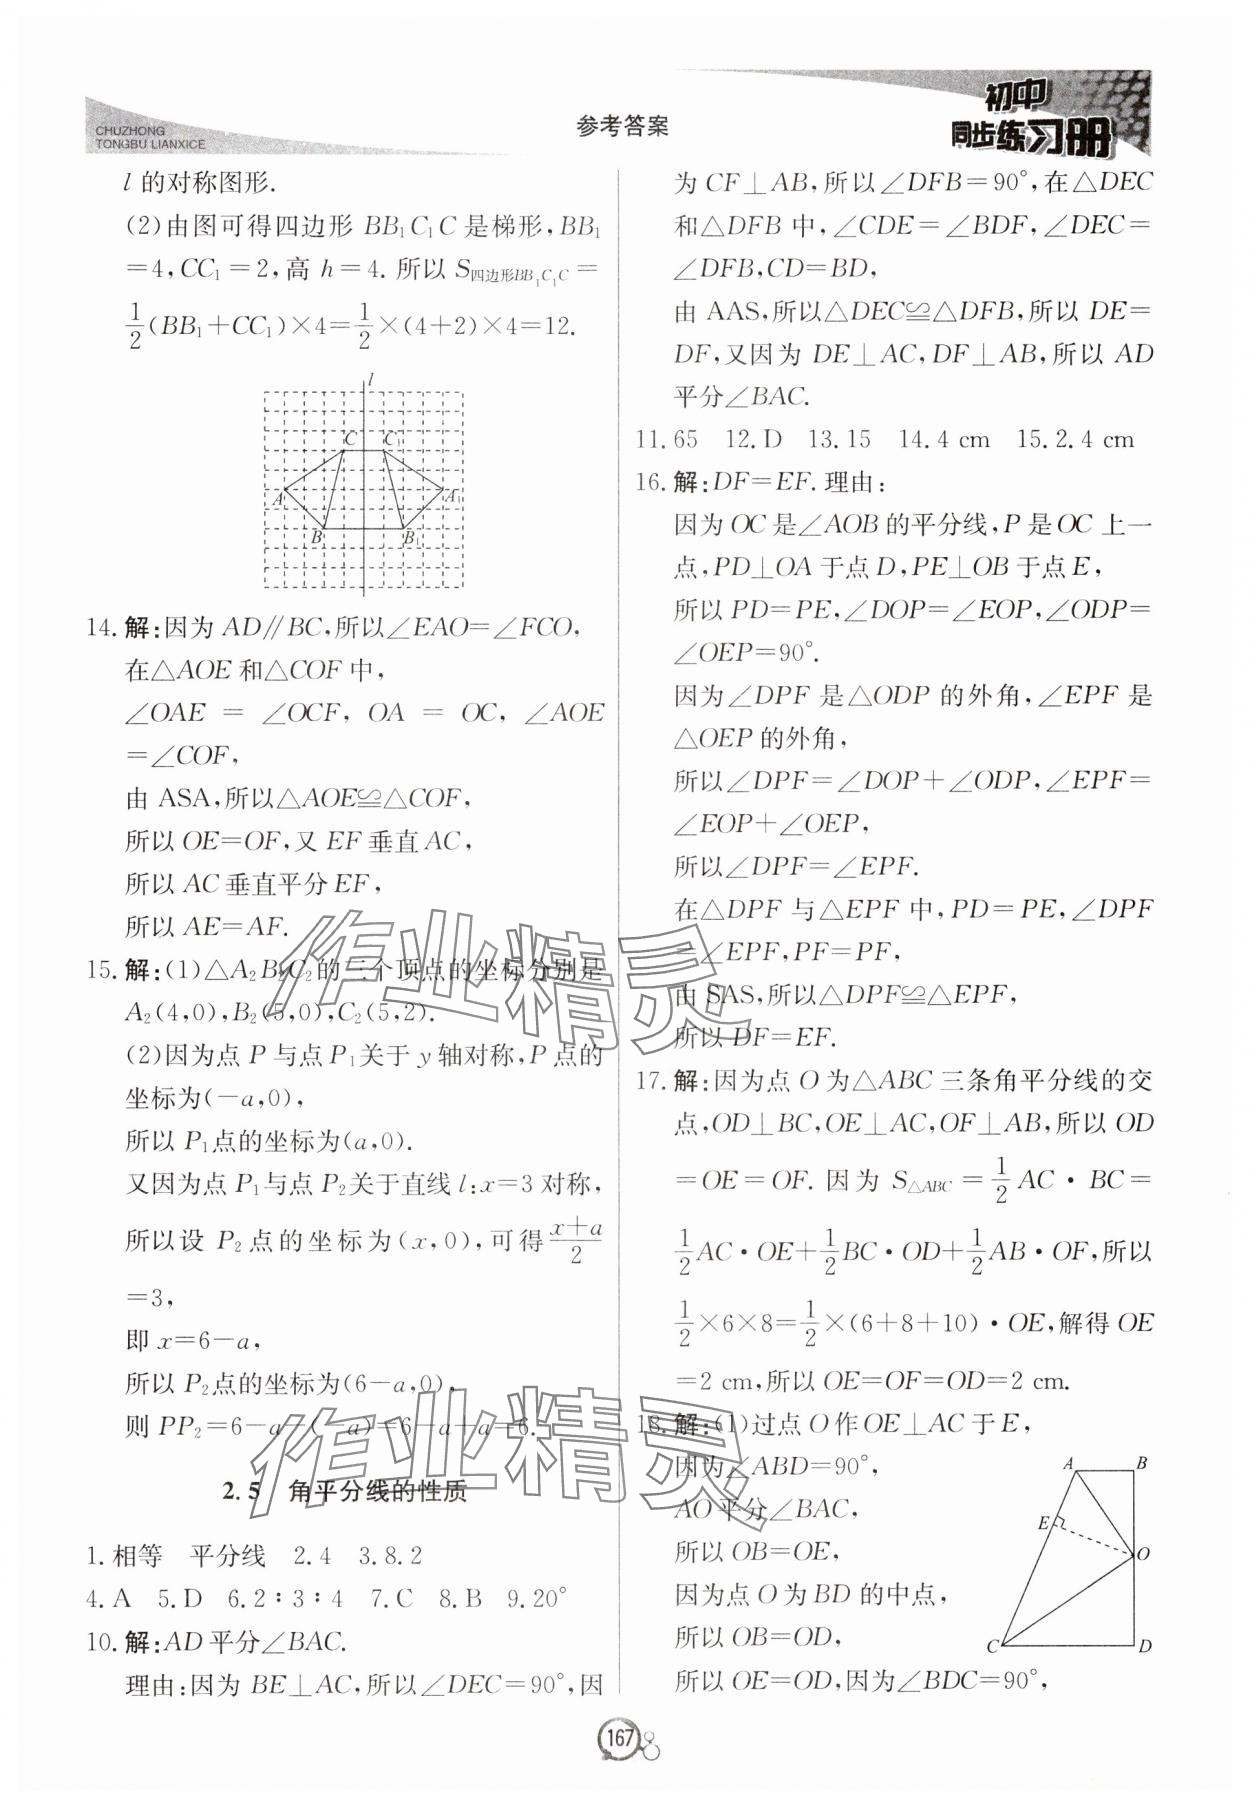 CHUZHONG
TONGBU LIANXICE
参考答案
初中
同步练习册
l 的对称图形.
(2)由图可得四边形 BB₁C₁C 是梯形,BB₁
=4,CC₁=2,高 h=4. 所以 S四边形BB₁C₁C=
1/2(BB₁+CC₁)×4=1/2×(4+2)×4=12.
l
C C₁
A A₁
B B₁
14. 解:因为 AD∥BC,所以∠EAO=∠FCO,
在△AOE 和△COF 中,
∠OAE = ∠OCF, OA = OC, ∠AOE
=∠COF,
由 ASA,所以△AOE≌△COF,
所以 OE=OF,又 EF 垂直 AC,
所以 AC 垂直平分 EF,
所以 AE=AF.
15. 解:(1)△A₂B₂C₂的三个顶点的坐标分别是
A₂(4,0),B₂(5,0),C₂(5,2).
(2)因为点 P 与点 P₁关于 y 轴对称,P 点的
坐标为(-a,0),
所以 P₁点的坐标为(a,0).
又因为点 P₁与点 P₂关于直线 l:x=3 对称,
所以设 P₂点的坐标为(x,0),可得(x+a)/2
=3,
即 x=6-a,
所以 P₂点的坐标为(6-a,0),
则 PP₂=6-a-(-a)=6-a+a=6.
2.5 角平分线的性质
1. 相等 平分线 2.4 3.8.2
4. A 5. D 6.2∶3∶4 7. C 8. B 9.20°
10. 解:AD 平分∠BAC.
理由:因为 BE⊥AC,所以∠DEC=90°,因
为 CF⊥AB,所以∠DFB=90°,在△DEC
和△DFB 中,∠CDE=∠BDF,∠DEC=
∠DFB,CD=BD,
由 AAS,所以△DEC≌△DFB,所以 DE=
DF,又因为 DE⊥AC,DF⊥AB,所以 AD
平分∠BAC.
11.65 12. D 13.15 14.4 cm 15.2.4 cm
16. 解:DF=EF. 理由:
因为 OC 是∠AOB 的平分线,P 是 OC 上一
点,PD⊥OA 于点 D,PE⊥OB 于点 E,
所以 PD=PE,∠DOP=∠EOP,∠ODP=
∠OEP=90°.
因为∠DPF 是△ODP 的外角,∠EPF 是
△OEP 的外角,
所以∠DPF=∠DOP+∠ODP,∠EPF=
∠EOP+∠OEP,
所以∠DPF=∠EPF.
在△DPF 与△EPF 中,PD=PE,∠DPF
=∠EPF,PF=PF,
由 SAS,所以△DPF≌△EPF,
所以 DF=EF.
17. 解:因为点 O 为△ABC 三条角平分线的交
点,OD⊥BC,OE⊥AC,OF⊥AB,所以 OD
=OE=OF. 因为 S△ABC=1/2AC·BC=
1/2AC·OE+1/2BC·OD+1/2AB·OF,所以
1/2×6×8=1/2×(6+8+10)·OE,解得 OE
=2 cm,所以 OE=OF=OD=2 cm.
18. 解:(1)过点 O 作 OE⊥AC 于 E,
因为∠ABD=90°,
AO 平分∠BAC,
所以 OB=OE,
因为点 O 为 BD 的中点,
所以 OB=OD,
所以 OE=OD,因为∠BDC=90°,
A B
E
O
C D
167
作业精灵
作业精灵